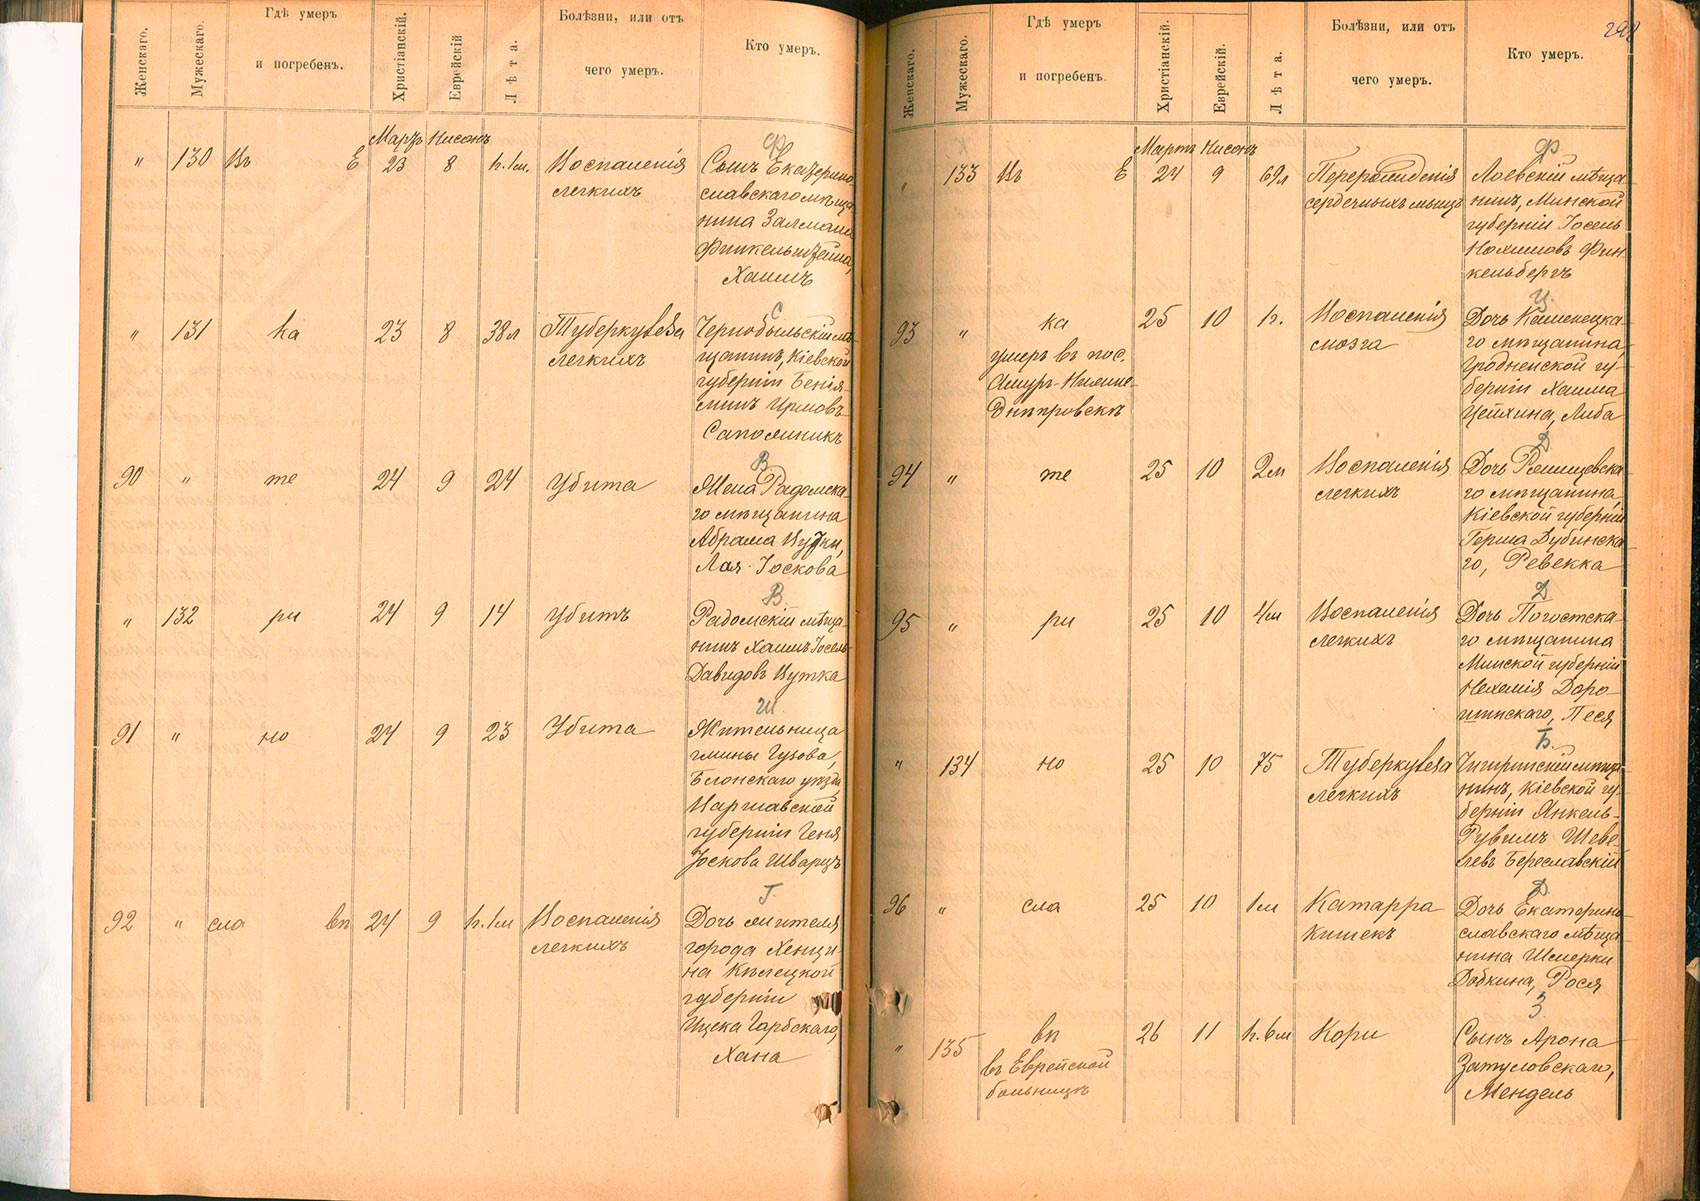 Женскаго.
Мужескаго.
Гдѣ умеръ
и погребенъ.
Христіанскій.
Еврейскій
Лѣта.
Болѣзни, или отъ
чего умеръ.
Кто умеръ.
Мартъ Нисонъ
Ф
„ 130 Въ Е 23 8 п.1м. Воспаленія
легкихъ
Сынъ Екатерино-
славскаго мѣща-
нина Залмана
Финкельштейна,
Хаимъ
С
„ 131 ка 23 8 38л Туберкулеза
легкихъ
Чернобыльскій мѣ-
щанинъ, Кіевской
губерніи Бенія-
минъ
В
90 „ те 24 9 24 Убита
Жена Радомска-
го мѣщанина
Абрама Вутки,
Лая Іоскова
В
„ 132 ри 24 9 14 Убитъ
Радомскій мѣща-
нинъ Хаимъ Іосель
Давидовъ Вутка
Ш
91 „ но 24 9 23 Убита
Жительница
гмины Гузова,
Блонскаго уѣзда
Варшавской
губерніи Геня
Іоскова Шварцъ
Г.
92 „ сла вп 24 9 п.1м Воспаленія
легкихъ
Дочь жителя
города Хенци-
на Кѣлецкой
губерніи
Ицека Гарбскаго,
Хана
292
Женскаго.
Мужескаго.
Гдѣ умеръ
и погребенъ.
Христіанскій.
Еврейскій.
Лѣта.
Болѣзни, или отъ
чего умеръ.
Кто умеръ.
Мартъ Нисонъ
Ф
„ 133 Въ Е 24 9 69л Перерожденія
сердечныхъ мышцъ
Лоевскій мѣща-
нинъ, Минской
губерніи Іосель
Нохимовъ Фин-
кельбергъ
Ц.
93 „ ка 25 10 п. Воспаленія
мозга
умеръ въ пос.
Амуръ-Нижне-
Днѣпровскѣ
Дочь Каменецка-
го мѣщанина,
Гродненской гу-
берніи Хаима
Цейхина, Либа
Д
94 „ те 25 10 2м Воспаленія
легкихъ
го мѣщанина,
Кіевской губерніи
Герша Дубинска-
го, Ревекка
Д
95 „ ри 25 10 4м Воспаленія
легкихъ
Дочь Погостска-
го мѣщанина
Минской губерніи
Нехемія Доро-
шинскаго, Песя
Б.
„ 134 но 25 10 75 Туберкулеза
легкихъ
Чигринскій мѣща-
нинъ, Кіевской гу-
берніи Янкель-
Рувимъ Шеве-
левъ Береславскій
Д
96 „ сла 25 10 1м Катарра
кишекъ
Дочь Екатерино-
славскаго мѣща-
нина Шмерки
Добкина, Рося
З
„ 135 вп 26 11 п.6м Кори
въ Еврейской
больницѣ
Сынъ Арона
Затуловскаго,
Мендель